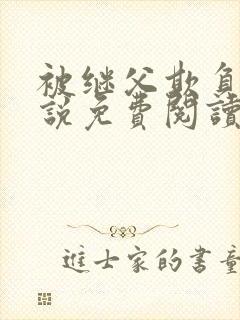 被继父欺负
說免費閱讀
進士家的書童